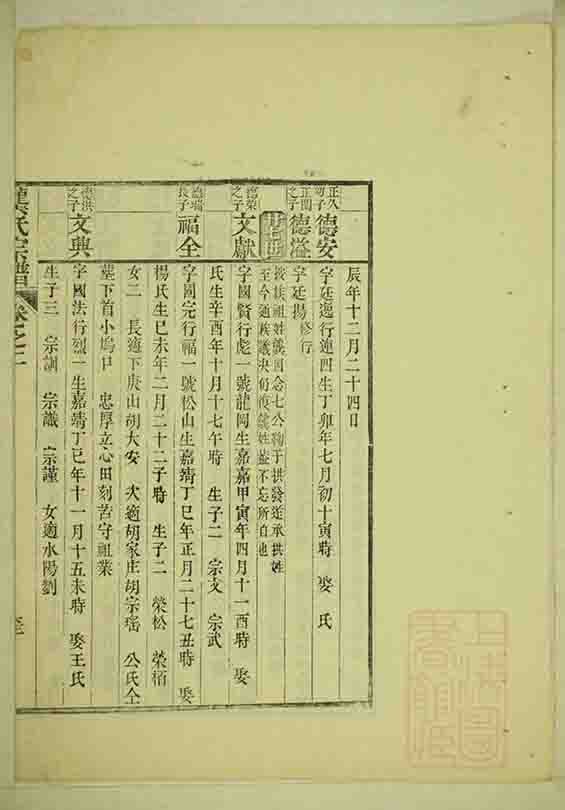 辰年十二月二十四日
正久
初子
德安
字廷遜行連四生丁卯年七月初十寅時 娶 氏
正閏
之子
德溢
字廷揚 修行
廿七世
按族祖姓龔因念七公鞠于拱發遂承拱姓
至今通族議決仍復龔姓並不忘所自也
德榮
之子
文獻
字國賢行彪一號龍岡生嘉靖甲寅年四月十一酉時 娶
氏生辛酉年十月十七午時 生子二 宗文 宗武
德瑞
長子
福全
字國完行福一號松山生嘉靖丁巳年正月二十七丑時 娶
楊氏生己未年二月二十二子時 生子二 榮松 榮栢
女二 長適下庚山胡大安 次適胡家庄胡宗瑤 公氏仝
墓下首小塢戶 忠厚立心田刻苦守祖業
德洪
之子
文興
字國法行烈一生嘉靖丁巳年十一月十五未時 娶王氏
生子三 宗訓 宗識 宗謹 女適水陽劉
龔氏宗譜 卷之三
上海圖
書館藏